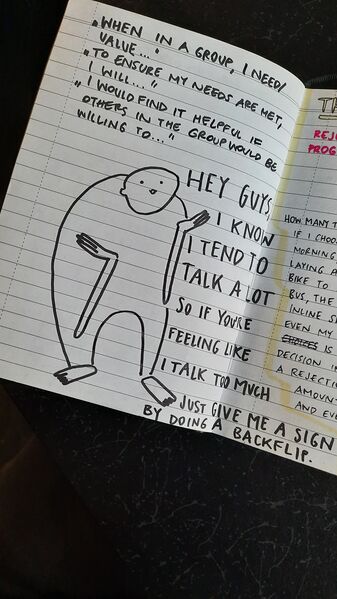 „WHEN IN A GROUP, I NEED/
VALUE..."
„TO ENSURE MY NEEDS ARE MET,
I WILL..."
„I WOULD FIND IT HELPFUL IF
OTHERS IN THE GROUP WOULD BE
WILLING TO..."
HEY GUYS,
I KNOW
I TEND TO
TALK A LOT
SO IF YOU'RE
FEELING LIKE
I TALK TOO MUCH
JUST GIVE ME A SIGN
BY DOING A BACKFLIP.
HOW MANY
IF I
MORNING
BIKE TO
BUS, THE
EVEN MY
CHOICES IS
DECISION
AND